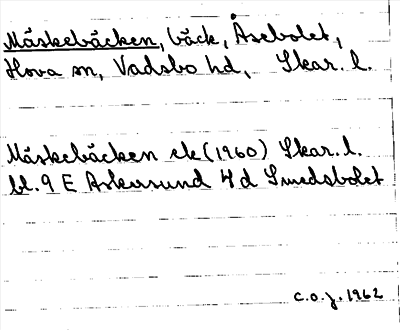 Måskebäcken, bäck, Åsebolet,
Hova sn, Vadsbo hd, Skar. l.
Måskebäcken ek (1960) Skar. l.
bl. 9 E Askersund 4 d Smedsbolet
c.o.j. 1962